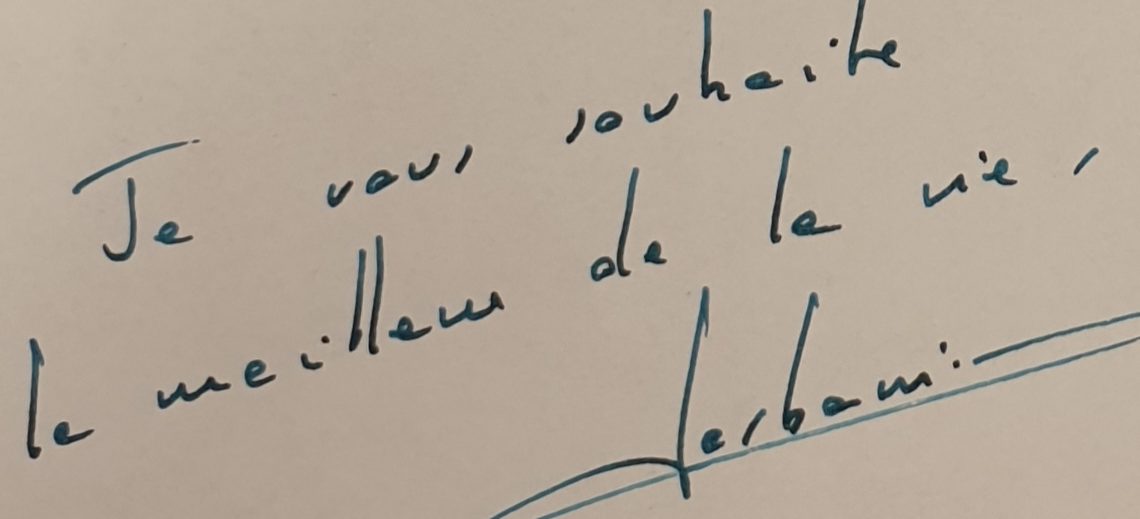 Je vous souhaite
le meilleur de la vie,